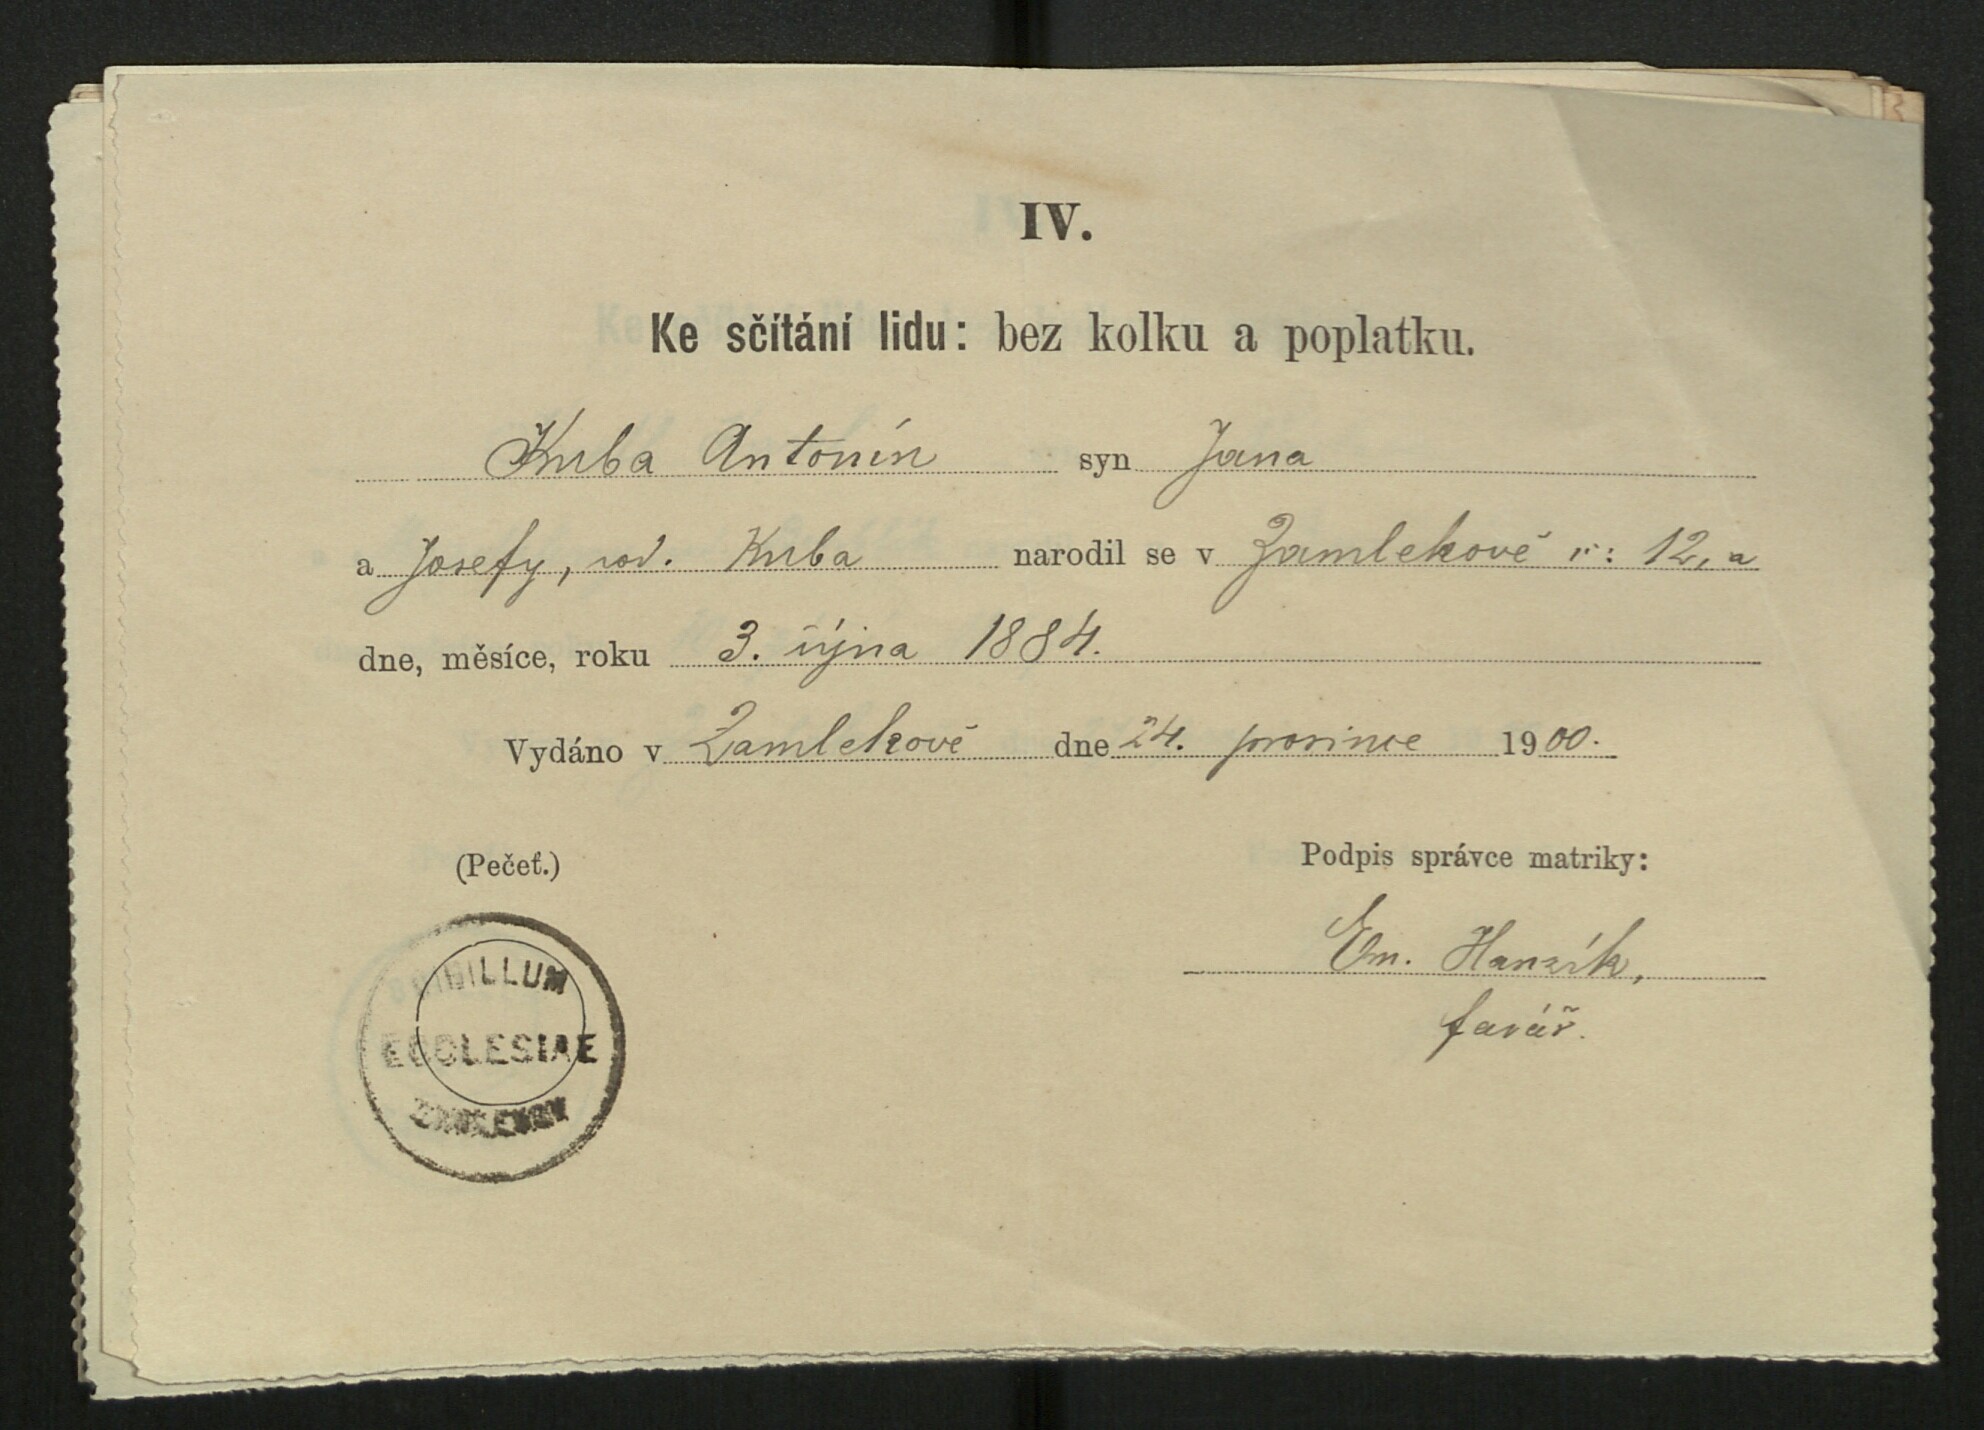 IV.
Ke sčítání lidu: bez kolku a poplatku.
Kuba Antonín syn Jana
a Josefy, roz. Kuba narodil se v Zamlekově č: 12, a
dne, měsíce, roku 3. října 1884.
Vydáno v Zamlekově dne 24. prosince 1900.
(Pečeť.)
Podpis správce matriky:
Em. Hanzík,
farář.
SIGILLUM
ECCLESIAE